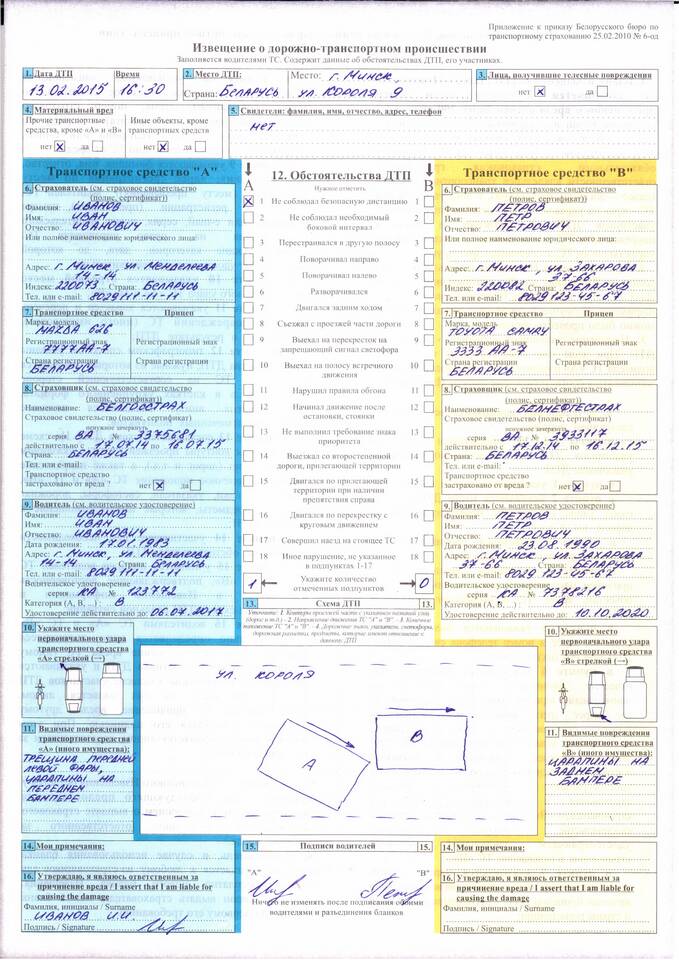 Приложение к приказу Белорусского бюро по
транспортному страхованию 25.02.2010 № 6-од
Извещение о дорожно-транспортном происшествии
Заполняется водителями ТС. Содержит данные об обстоятельствах ДТП, его участниках.
1. Дата ДТП Время
13.02.2015 16:30
2. Место ДТП: Место: г. Минск,
Страна: Беларусь ул. Короля 9
3. Лица, получившие телесные повреждения
нет X да
4. Материальный вред
Прочие транспортные средства, кроме «А» и «В»
нет X да
Иные объекты, кроме транспортных средств
нет X да
5. Свидетели: фамилия, имя, отчество, адрес, телефон
нет
Транспортное средство "А"
6. Страхователь (см. страховое свидетельство
(полис, сертификат))
Фамилия: Иванов
Имя: Иван
Отчество: Иванович
Или полное наименование юридического лица:
Адрес: г. Минск, ул. Менделеева
14-14
Индекс: 220073 Страна: Беларусь
Тел. или e-mail: 8029 111-11-11
7. Транспортное средство Прицеп
Марка, модель
MAZDA 626
Регистрационный знак Регистрационный знак
7777 АА-7
Страна регистрации Страна регистрации
БЕЛАРУСЬ
8. Страховщик (см. страховое свидетельство
(полис, сертификат))
Наименование: БЕЛГОССТРАХ
Страховое свидетельство (полис, сертификат)
ненужное зачеркнуть
серия ВА № 3375681
действительно с 17.07.14 по 16.07.15
Страна: БЕЛАРУСЬ
Тел. или e-mail:
Транспортное средство
застраховано от вреда ? нет X да
9. Водитель (см. водительское удостоверение)
Фамилия: Иванов
Имя: Иван
Отчество: Иванович
Дата рождения: 17.01.1983
Адрес: г. Минск, ул. Менделеева
14-14 Страна: Беларусь
Тел. или e-mail: 8029 111-11-11
Водительское удостоверение
серия КА № 123772
Категория (А, В, ...) : В
Удостоверение действительно до: 06.07.2017
10. Укажите место
первоначального удара
транспортного средства
«А» стрелкой (→)
11. Видимые повреждения
транспортного средства
«А» (иного имущества):
ТРЕЩИНА ПЕРЕДНЕЙ
ЛЕВОЙ ФАРЫ,
ЦАРАПИНЫ НА
ПЕРЕДНЕМ
БАМПЕРЕ
14. Мои примечания:
16. Утверждаю, я являюсь ответственным за
причинение вреда / I assert that I am liable for
causing the damage
Фамилия, инициалы / Surname
ИВАНОВ И.И.
Подпись / Signature
12. Обстоятельства ДТП
А Нужное отметить В
X 1 Не соблюдал безопасную дистанцию 1
2 Не соблюдал необходимый боковой интервал 2
3 Перестраивался в другую полосу 3
4 Поворачивал направо 4
5 Поворачивал налево 5
6 Разворачивался 6
7 Двигался задним ходом 7
8 Съезжал с проезжей части дороги 8
9 Выехал на перекресток на запрещающий сигнал светофора 9
10 Выехал на полосу встречного движения 10
11 Нарушил правила обгона 11
12 Начинал движение после остановки, стоянки 12
13 Не выполнил требование знака приоритета 13
14 Выезжал со второстепенной дороги, прилегающей территории 14
15 Двигался по прилегающей территории при наличии препятствия справа 15
16 Двигался по перекрестку с круговым движением 16
17 Совершил наезд на стоящее ТС 17
18 Иное нарушение, не указанное в подпунктах 1-17 18
1 Укажите количество отмеченных подпунктов 0
13. Схема ДТП 13.
ул. КОРОЛЯ
А
В
15. Подписи водителей 15.
"А" "В"
Ничего не изменять после подписания обоими
водителями и разъединения бланков
Транспортное средство "В"
6. Страхователь (см. страховое свидетельство
(полис, сертификат))
Фамилия: Петров
Имя: Петр
Отчество: Петрович
Или полное наименование юридического лица:
Адрес: г. Минск, ул. Захарова
37-66
Индекс: 220082 Страна: Беларусь
Тел. или e-mail: 8029 123-45-67
7. Транспортное средство Прицеп
Марка, модель
TOYOTA CAMRY
Регистрационный знак Регистрационный знак
3333 АА-7
Страна регистрации Страна регистрации
БЕЛАРУСЬ
8. Страховщик (см. страховое свидетельство
(полис, сертификат))
Наименование: БЕЛНЕФТЕСТРАХ
Страховое свидетельство (полис, сертификат)
ненужное зачеркнуть
серия ВА № 3933117
действительно с 17.12.14 по 16.12.15
Страна: БЕЛАРУСЬ
Тел. или e-mail:
Транспортное средство
застраховано от вреда ? нет X да
9. Водитель (см. водительское удостоверение)
Фамилия: Петров
Имя: Петр
Отчество: Петрович
Дата рождения: 23.08.1990
Адрес: г. Минск, ул. Захарова
37-66 Страна: Беларусь
Тел. или e-mail: 8029 123-45-67
Водительское удостоверение
серия КА № 7378216
Категория (А, В, ...) : В
Удостоверение действительно до: 10.10.2020
10. Укажите место
первоначального удара
транспортного средства
«В» стрелкой (→)
11. Видимые повреждения
транспортного средства
«В» (иного имущества):
ЦАРАПИНЫ НА
ЗАДНЕМ
БАМПЕРЕ
14. Мои примечания:
16. Утверждаю, я являюсь ответственным за
причинение вреда / I assert that I am liable for
causing the damage
Фамилия, инициалы / Surname
Подпись / Signature